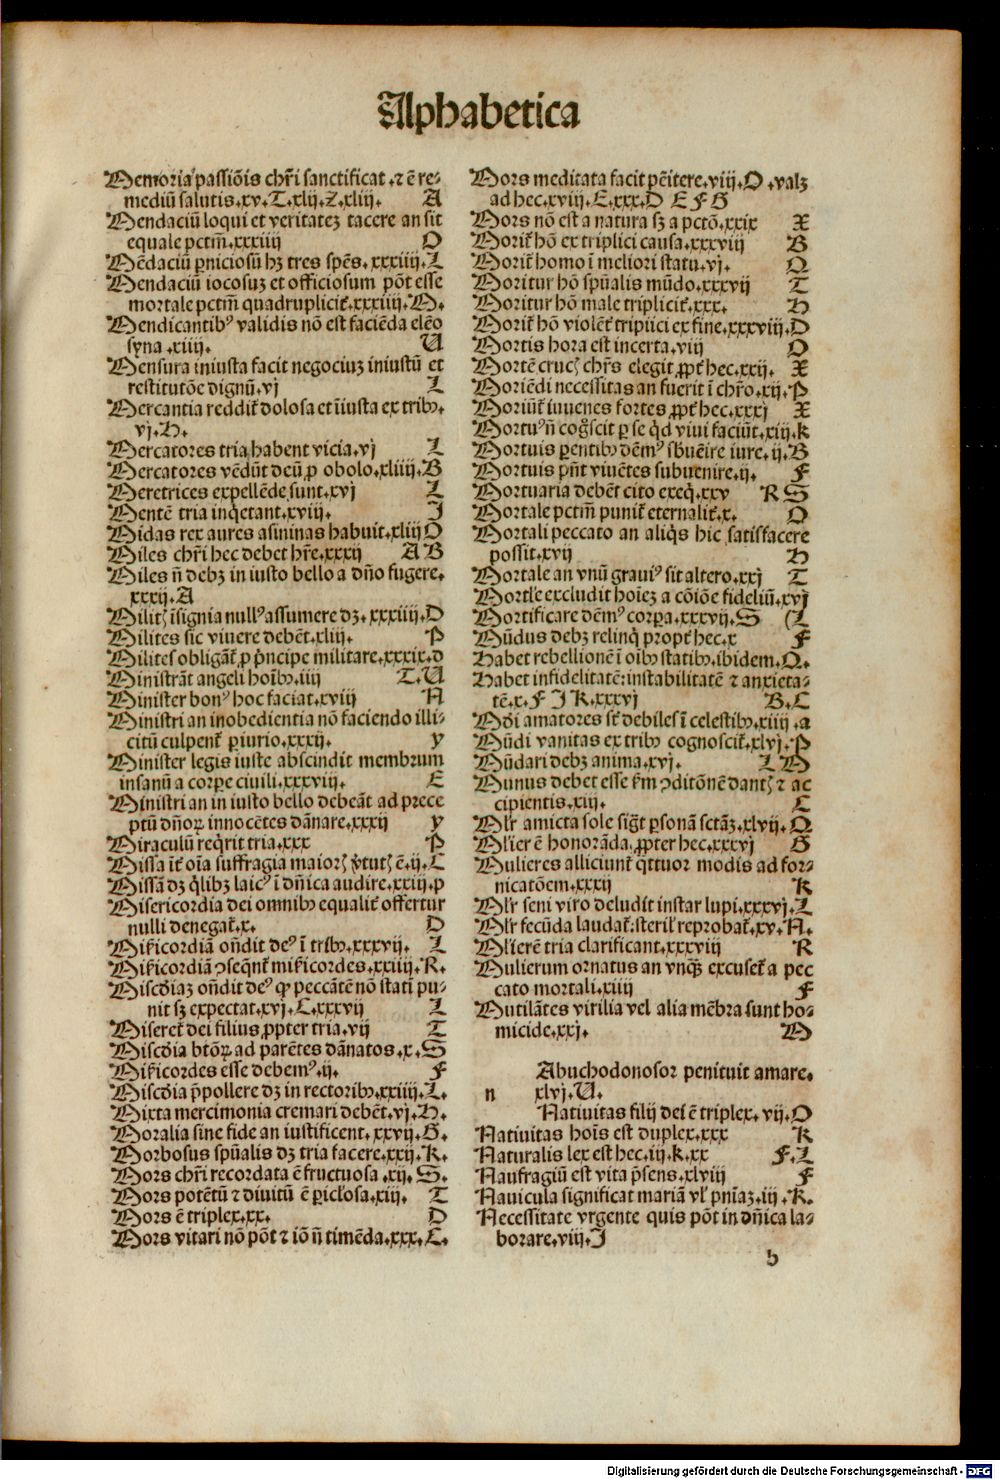 Alphabetica
Memoria passiõis chr̃i sanctificat .⁊ ẽ re⸗
mediũ salutis.xv.T.xlij.Z.xliij. A
Mendaciũ loqui et veritateꝫ tacere an sit
equale pctm̃.xxxiiij O
Mẽdaciũ ꝑniciosũ hꝫ tres spẽs.xxxiiij.L
Mendaciũ iocosuꝫ et officiosum põt esse
mortale pctm̃ quadruplicit̃.xxxiiij.M.
Mendicantibꝰ validis nõ est faciẽda eleo
syna.xiiij. U
Mensura iniusta facit negociuꝫ iniustũ et
restitutõe dignũ.vj L
Mercantia reddit̃ dolosa et iĩusta ex tribꝫ.
vj.H.
Mercatores tria habent vicia.vj L
Mercatores vẽdũt deũ ꝓ obolo.xliiij.B
Meretrices expellẽde sunt.xvj L
Mentẽ tria inq̃etant.xviij. J
Midas rex aures asininas habuit.xliij O
Miles chr̃i hec debet hr̃e.xxxij A B
Miles ñ debꝫ in iusto bello a dño fugere.
xxxij.A
Militꝭ ĩsignia nullꝰ assumere dꝫ.xxxiiij.D
Milites sic viuere debẽt.xliij. P
Milites obligãt̃ ꝓ p̃ncipe militare.xxxix.d
Ministrãt angeli hoĩbꝫ.iiij T.U
Minister bonꝰ hoc faciat.xviij N
Ministri an inobedientia nõ faciendo illi⸗
citũ culpent̃ ꝑiurio.xxxij. y
Minister legis iuste abscindit membrum
insanũ a corꝑe ciuili.xxxvij. E
Ministri an in iusto bello debeãt ad prece
ptũ dñoꝝ innocẽtes dãnare.xxxij y
Miraculũ req̃rit tria.xxx P
Missa it̃ oĩa suffragia maiorꝭ ṽtutꝭ ẽ.ij.C
Missã dꝫ q̃libꝫ laicꝰ ĩ dñica audire.xxiij.p
Misericordia dei omnibꝫ equalit̃ offertur
nulli denegat̃.x. D
Mik̃icordiã oñdit deꝰ ĩ tribꝫ.xxxvij. L
Mik̃icordiã ꝯseq̃nt̃ mik̃icordes.xxiiij.R.
Miscðiaꝫ oñdit deꝰ ꝙ peccãtẽ nõ statĩ pu⸗
nit sꝫ expectat.xvj.C.xxxvij L
Miseret̃ dei filius ꝓpter tria.vij T
Miscðia btõꝝ ad parẽtes dãnatos.x.S
Mik̃icordes esse debemꝰ.ij. F
Miscðia p̃pollere dꝫ in rectoribꝫ.xxiiij.L.
Mixta mercimonia cremari debẽt.vj.H.
Moralia sine fide an iustificent.xxvij.G.
Morbosus spũalis dꝫ tria facere.xxij.K.
Mors chr̃i recordata ẽ fructuosa.xij.S.
Mors potẽtũ ⁊ diuitũ ẽ ꝑicl'osa.xij. T
Mors ẽ triplex.xx. D
Mors vitari nõ põt ⁊ iõ ñ timẽda.xxx.C.
Mors meditata facit pẽitere.viij.O.valꝫ
ad hec.xviij.E.xxx.D E F G
Mors nõ est a natura sꝫ a pctõ.xxix X
Morit̃ hõ ex triplici causa.xxxviij B
Morit̃ homo ĩ meliori statu.vj. Q
Moritur hõ spũalis mũdo.xxxvij T
Moritur hõ male triplicit̃.xxx. H
Morit̃ hõ violẽt̃ triplici ex fine.xxxviij.D
Mortis hora est incerta.viij O
Mortẽ crucꝭ chr̃s elegit ꝓpt̃ hec.xxij. X
Moriẽdi necessitas an fuerit ĩ chr̃o.xij.P
Moriũt̃ iuuenes fortes ꝓpt̃ hec.xxxj X
Mortuꝰ ñ cog̃scit ꝑ se q̃d viui faciũt.xij.k
Mortuis ꝑentibꝫ dẽmꝰ sbuẽire iure.ij.B
Mortuis p̃nt viuẽtes subuenire.ij. F
Mortuaria debẽt cito exeq̃.xxv R S
Mortale pctm̃ punit̃ eternalit̃.x. O
Mortali peccato an aliq̃s hic satisfacere
possit.xvij H
Mortale an vnũ grauiꝰ sit altero.xxj T
Mortl'e excludit hoieꝫ a cõiõe fideliũ.xvj
Mortificare dẽmꝰ corꝑa.xxxvij.S (L
Mũdus debꝫ relinq̃ propt̃ hec.x F
Habet rebellionẽ ĩ oĩbꝫ statibꝫ.ibidem.Q.
Habet infidelitatẽ:instabilitatẽ ⁊ anxieta⸗
tẽ.x.F J K.xxxvj B.C
Mðĩ amatores st̃ debiles ĩ celestibꝫ.xiiij.a
Mũdi vanitas ex tribꝫ cognoscit̃.xlvj.P
Mũdari debꝫ anima.xvj. L M
Munus debet esse k̃m ꝯditõnẽ dantꝭ ⁊ ac
cipientis.xij. C
Ml'r amicta sole sig̃t ꝑsonã sctãꝫ.xlvij.Q
Ml'ier ẽ honorãda ꝓpter hec.xxxvj G
Mulieres alliciunt̃ q̃ttuor modis ad for⸗
nicatõem.xxxij K
Ml'r seni viro deludit instar lupi.xxxvj.L
Ml'r fecũda laudat̃:steril' reprobat̃.xv.N.
Ml'ierẽ tria clarificant.xxxviij R
Mulierum ornatus an vnq̃ꝫ excuset̃ a pec
cato mortali.xiiij F
Mutilãtes virilia vel alia mẽbra sunt ho⸗
micide.xxj. M
Abuchodonosor penituit amare.
n xlvj.U.
Natiuitas filij dei ẽ triplex.vij.O
Natiuitas hoĩs est duplex.xxx K
Naturalis lex est hec.iij.k.xx F.L
Naufragiũ est vita p̃sens.xlviij F
Nauicula significat mariã vl' pnĩaꝫ.iij.K.
Necessitate vrgente quis põt in dñica la⸗
borare.viij.J
b
Digitalisierung gefördert durch die Deutsche Forschungsgemeinschaft - DFG